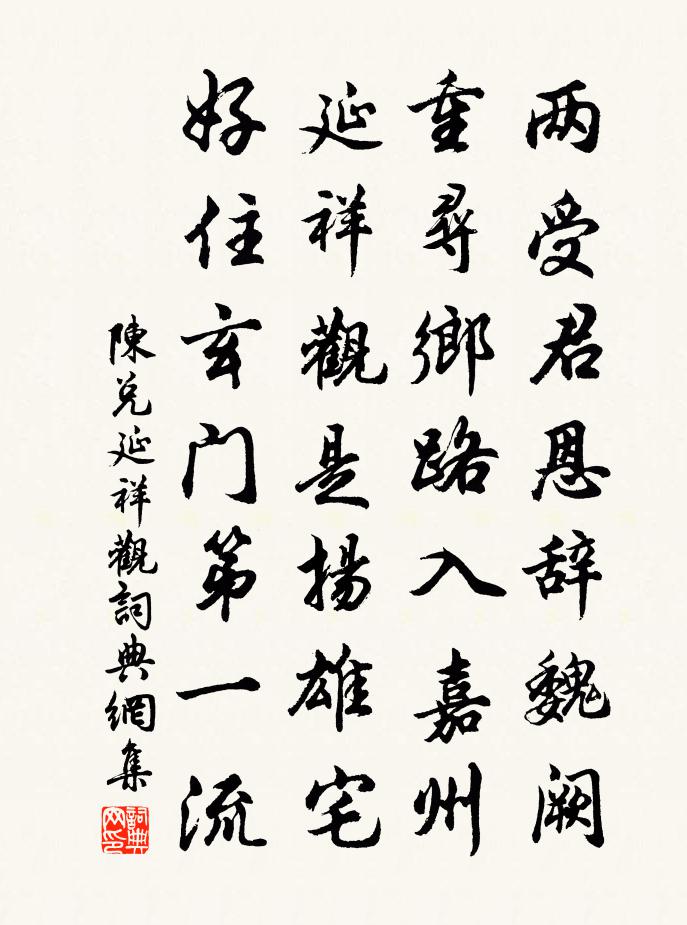 两受君恩辞魏阙
重尋鄉路入嘉州
延祥觀是揚雄宅
好住玄门第一流
陳兑延祥觀詞典網集
詞典网印